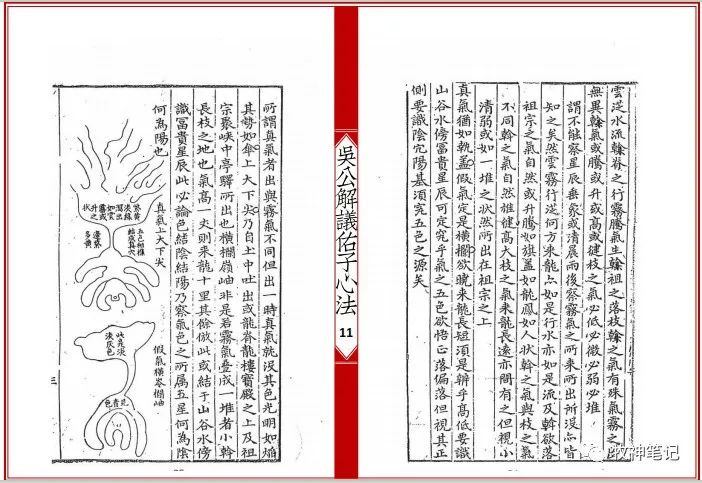 雲泛水流榦脊之行霧騰氣生榦祖之落枝榦之氣有殊氣霧之
無異榦氣或騰或升或高或健枝之氣必低必微必弱必堆
謂不能察星辰垂象或清晨雨後察霧氣之所來所出所沒亦皆
知之矣然雲霧行從何方來龍亦如是行水亦如是流及榦欲落
祖宗之氣自然或升騰如旗蓋如龍鳳如人狀榦之氣與枝之氣
不同榦之氣自然雄健高大枝之氣來龍長遠亦間有之但視小
清弱或如一堆之狀然所出在祖宗之上
真氣猶如執蓋假氣定是橫攔欲曉來龍長短須是辨乎高低要識
山谷水傍富貴星辰可定究乎氣之五色欲悟正落偏落但視其正
側要識陰宅陽基須究五色之源矣
吳公解議佑子心法
11
所謂真氣者出與霧氣不同但出一時真氣就沒其色光明如焰
其勢如傘上大下尖乃自土中吐出或龍脊龍樓寶殿之上及祖
宗聚峽中亭驛所出也橫攔嶺岫非是若霧氣疊成一堆者小榦
長枝之地也氣高一丈則來龍十里其餘倣此或結于山谷水傍
識富貴星辰此必論色結陰結陽乃察氣色之所屬五星何為陰
何為陽也
真氣上大下尖
假氣橫岑攔岫
三
牧神笔记